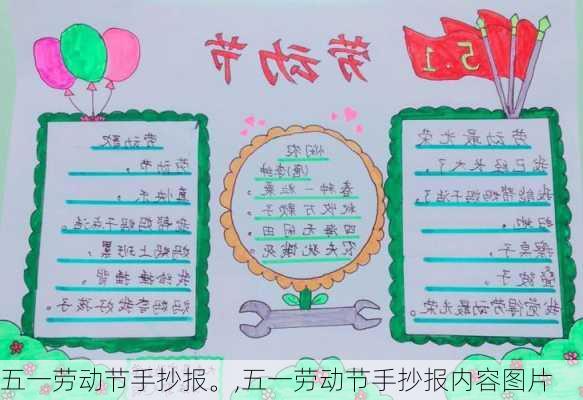 劳动节
5.1
劳动歌
劳动节,
真快乐,
我帮妈妈干农活.
妈妈上班累
我给捶捶背。
妈妈夸我好孩子.
悯农
(唐)李绅
春种一粒粟
秋收万颗子
四海无闲田
农夫犹饿死.
劳动最光荣
我已经长大了,
我能帮妈妈干活了,
扫地
擦桌子
叠被子.
我觉得劳动最光荣.
五一劳动节手抄报。,五一劳动节手抄报内容图片